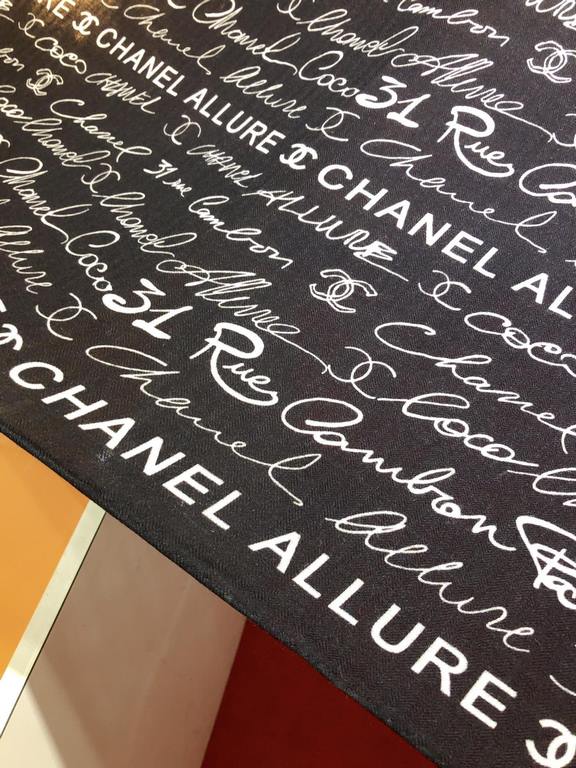 Cambon
Chanel Coco Chanel Allure
Chanel Coco 31 Rue Ca
RE CHANEL ALLURE CHANEL AL
COCO CHANEL CHANEL ALLURE COCO
Chanel 31 rue Cambon Chanel
Coco Chanel Chanel Allure Coco
Chanel Coco 31 Rue Cambon Pa
Allure Chanel Allure
CHANEL ALLURE